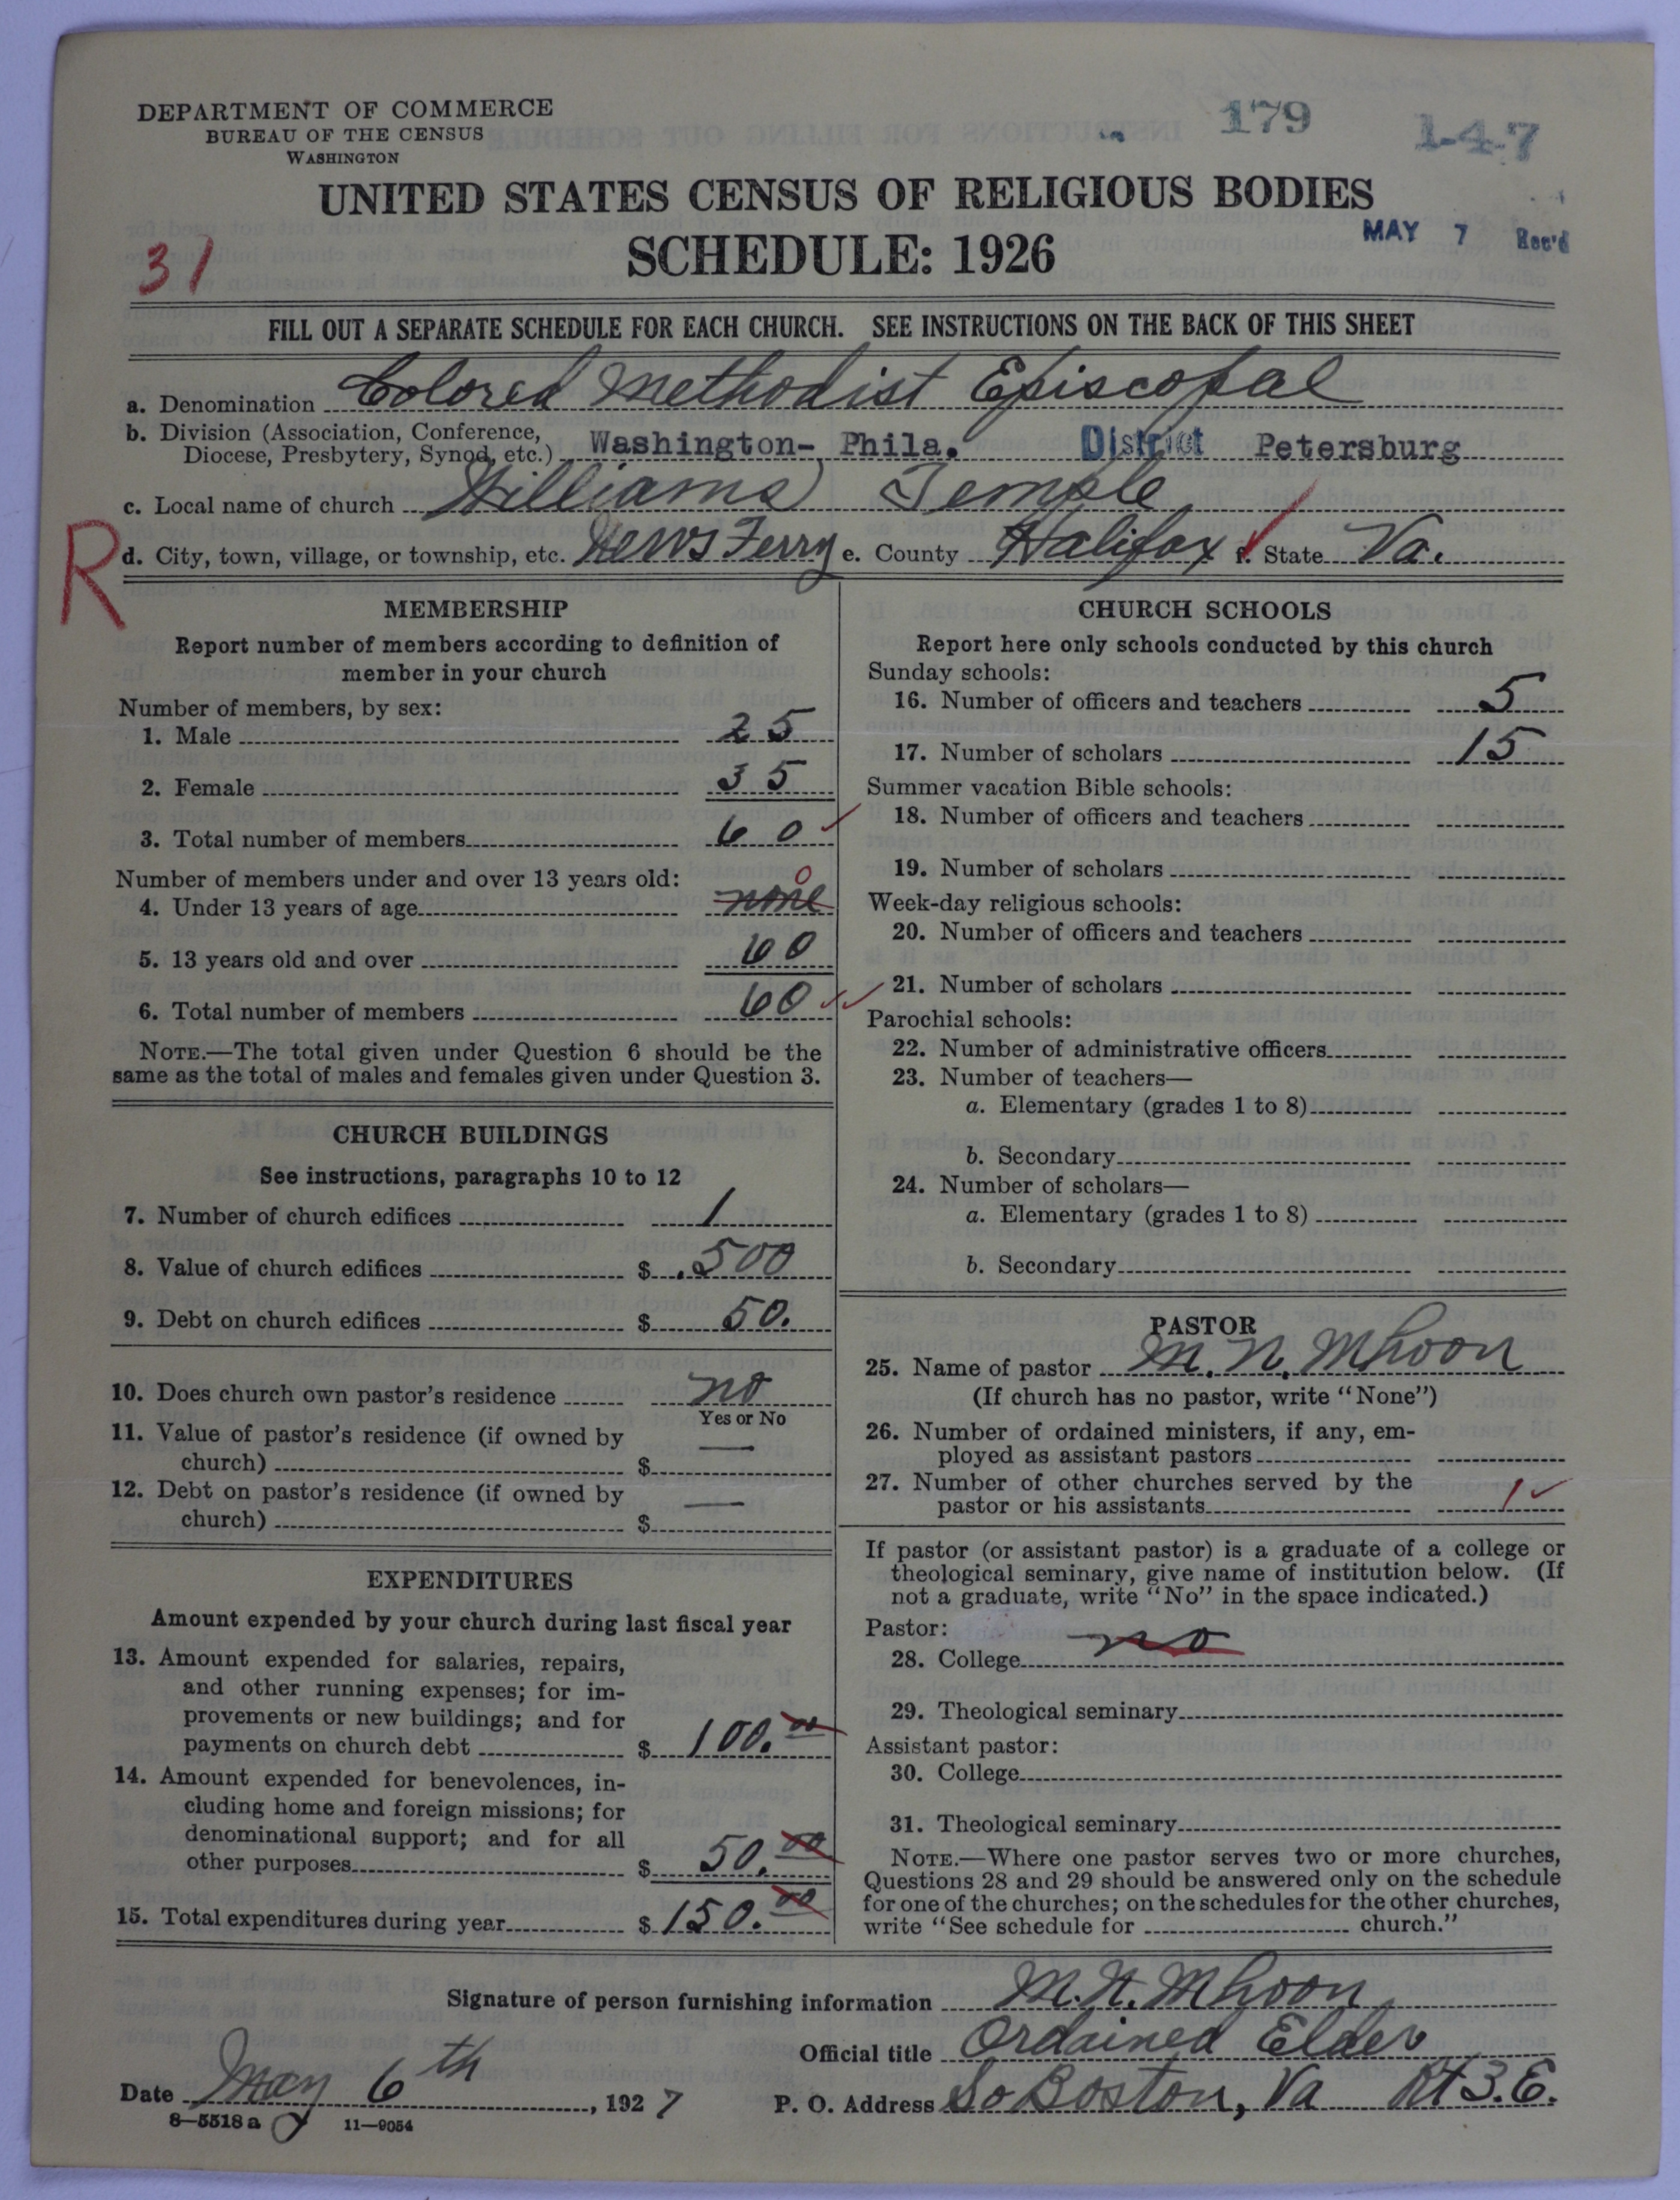 DEPARTMENT OF COMMERCE
BUREAU OF THE CENSUS
WASHINGTON
179
1-4-7
UNITED STATES CENSUS OF RELIGIOUS BODIES
SCHEDULE: 1926
MAY 7 Rec'd
31
FILL OUT A SEPARATE SCHEDULE FOR EACH CHURCH. SEE INSTRUCTIONS ON THE BACK OF THIS SHEET
a. Denomination Colored Methodist Episcopal
b. Division (Association, Conference, Diocese, Presbytery, Synod, etc.) Washington- Phila. District Petersburg
c. Local name of church Williams Temple
R
d. City, town, village, or township, etc. News Ferry e. County Halifax f. State Va.
MEMBERSHIP
Report number of members according to definition of
member in your church
Number of members, by sex:
1. Male 25
2. Female 35
3. Total number of members 60
Number of members under and over 13 years old:
4. Under 13 years of age none 0
5. 13 years old and over 60
6. Total number of members 60
NOTE.—The total given under Question 6 should be the
same as the total of males and females given under Question 3.
CHURCH BUILDINGS
See instructions, paragraphs 10 to 12
7. Number of church edifices 1
8. Value of church edifices $ .500
9. Debt on church edifices $ 50.
10. Does church own pastor's residence no
Yes or No
11. Value of pastor's residence (if owned by
church) $ —
12. Debt on pastor's residence (if owned by
church) $ —
EXPENDITURES
Amount expended by your church during last fiscal year
13. Amount expended for salaries, repairs,
and other running expenses; for im-
provements or new buildings; and for
payments on church debt $ 100.00
14. Amount expended for benevolences, in-
cluding home and foreign missions; for
denominational support; and for all
other purposes $ 50.00
15. Total expenditures during year $ 150.00
CHURCH SCHOOLS
Report here only schools conducted by this church
Sunday schools:
16. Number of officers and teachers 5
17. Number of scholars 15
Summer vacation Bible schools:
18. Number of officers and teachers
19. Number of scholars
Week-day religious schools:
20. Number of officers and teachers
21. Number of scholars
Parochial schools:
22. Number of administrative officers
23. Number of teachers—
a. Elementary (grades 1 to 8)
b. Secondary
24. Number of scholars—
a. Elementary (grades 1 to 8)
b. Secondary
PASTOR
25. Name of pastor M. N. Mhoon
(If church has no pastor, write "None")
26. Number of ordained ministers, if any, em-
ployed as assistant pastors
27. Number of other churches served by the
pastor or his assistants 1
If pastor (or assistant pastor) is a graduate of a college or
theological seminary, give name of institution below. (If
not a graduate, write "No" in the space indicated.)
Pastor:
28. College no
29. Theological seminary
Assistant pastor:
30. College
31. Theological seminary
NOTE.—Where one pastor serves two or more churches,
Questions 28 and 29 should be answered only on the schedule
for one of the churches; on the schedules for the other churches,
write "See schedule for church."
Signature of person furnishing information M. N. Mhoon
Official title Ordained Elder
Date May 6th, 1927 P. O. Address So Boston, Va Rt 3. E.
8-5518 a 11-9054